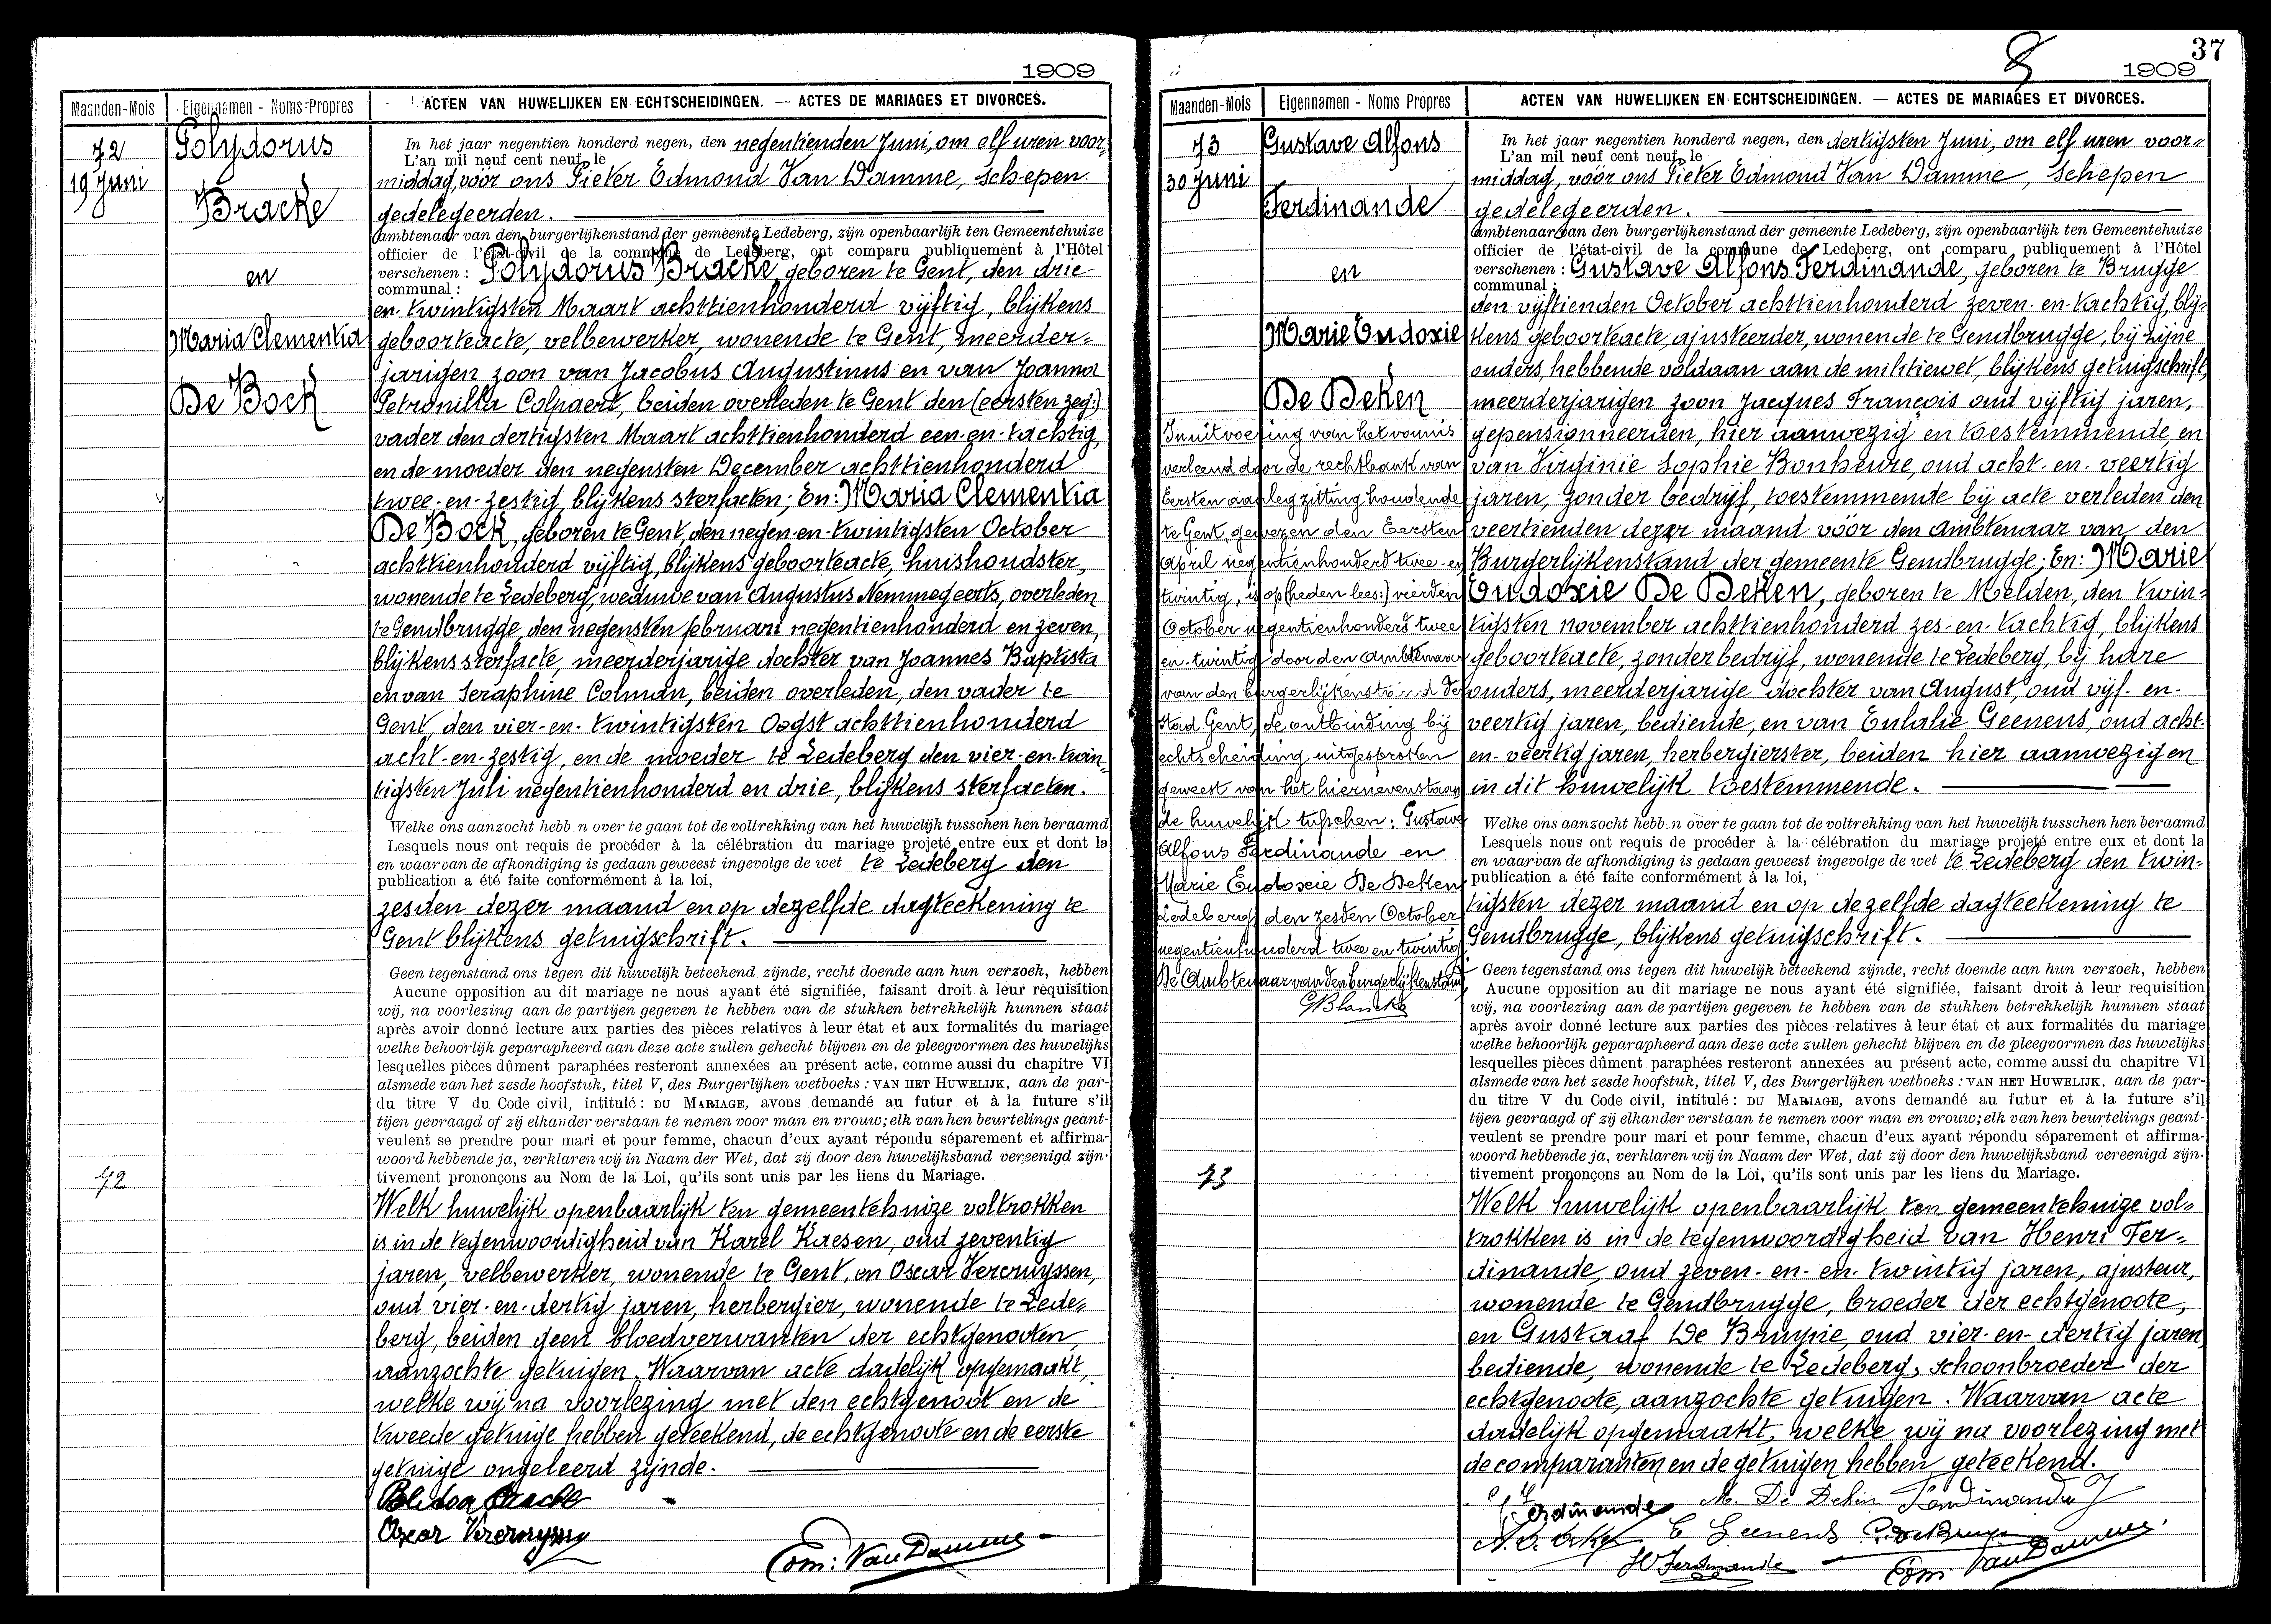 1909
Maanden-Mois Eigennamen - Noms-Propres ACTEN VAN HUWELIJKEN EN ECHTSCHEIDINGEN. — ACTES DE MARIAGES ET DIVORCES.
72
19 Juni
Polydorus
Bracke
en
Maria Clementia
De Bock
In het jaar negentien honderd negen, den negentienden Juni, om elf uren voor-
L'an mil neuf cent neuf, le
middag, vóór ons Pieter Edmond Van Damme, Schepen
gedelegeerden.
ambtenaar van den burgerlijkenstand der gemeente Ledeberg, zijn openbaarlijk ten Gemeentehuize
officier de l'état-civil de la commune de Ledeberg, ont comparu publiquement à l'Hôtel
verschenen : Polydorus Bracke, geboren te Gent, den drie-
communal :
en-twintigsten Maart achttienhonderd vijftig, blijkens
geboorteacte, velbewerker, wonende te Gent, meerder-
jarigen zoon van Jacobus Augustinus en van Joanna
Petronilla Colpaert, beiden overleden te Gent den (eersten zeg:)
vader den dertigsten Maart achttienhonderd een-en-tachtig,
en de moeder den negensten December achttienhonderd
twee-en-zestig, blijkens sterfacten; En: Maria Clementia
De Bock, geboren te Gent, den negen-en-twintigsten October
achttienhonderd vijftig, blijkens geboorteacte, huishoudster,
wonende te Ledeberg, weduwe van Augustus Nemmegeerts, overleden
te Gendbrugge, den negensten februari negentienhonderd en zeven,
blijkens sterfacte, meerderjarige dochter van Joannes Baptista
en van Seraphine Colman, beiden overleden, den vader te
Gent, den vier-en-twintigsten Oogst achttienhonderd
acht-en-zestig, en de moeder te Ledeberg den vier-en-twin-
tigsten Juli negentienhonderd en drie, blijkens sterfacten.
Welke ons aanzocht hebb n over te gaan tot de voltrekking van het huwelijk tusschen hen beraamd
Lesquels nous ont requis de procéder à la célébration du mariage projeté entre eux et dont la
en waarvan de afkondiging is gedaan geweest ingevolge de wet te Ledeberg den
publication a été faite conformément à la loi,
zesden dezer maand en op dezelfde dagteekening te
Gent blijkens getuigschrift.
Geen tegenstand ons tegen dit huwelijk beteekend zijnde, recht doende aan hun verzoek, hebben
Aucune opposition au dit mariage ne nous ayant été signifiée, faisant droit à leur requisition
wij, na voorlezing aan de partijen gegeven te hebben van de stukken betrekkelijk hunnen staat
après avoir donné lecture aux parties des pièces relatives à leur état et aux formalités du mariage
welke behoorlijk geparapheerd aan deze acte zullen gehecht blijven en de pleegvormen des huwelijks
lesquelles pièces dûment paraphées resteront annexées au présent acte, comme aussi du chapitre VI
alsmede van het zesde hoofstuk, titel V, des Burgerlijken wetboeks : VAN HET HUWELIJK, aan de par-
du titre V du Code civil, intitulé : DU MARIAGE, avons demandé au futur et à la future s'il
tijen gevraagd of zij elkander verstaan te nemen voor man en vrouw; elk van hen beurtelings geant-
veulent se prendre pour mari et pour femme, chacun d'eux ayant répondu séparement et affirma-
woord hebbende ja, verklaren wij in Naam der Wet, dat zij door den huwelijksband vereenigd zijn.
tivement prononçons au Nom de la Loi, qu'ils sont unis par les liens du Mariage.
72
Welk huwelijk openbaarlijk ten gemeentehuize voltrokken
is in de tegenwoordigheid van Karel Kaesen, oud zeventig
jaren, velbewerker, wonende te Gent, en Oscar Vercruyssen,
oud vier-en-dertig jaren, herbergier, wonende te Lede-
berg, beiden geen bloedverwanten der echtgenooten,
aanzochte getuigen. Waarvan acte dadelijk opgemaakt,
welke wij na voorlezing met den echtgenoot en de
tweede getuige hebben geteekend, de echtgenoote en de eerste
getuige ongeleerd zijnde.
Polidor Bracke
Oscar
Edm: Van Damme
37
1909
Maanden-Mois Eigennamen - Noms Propres ACTEN VAN HUWELIJKEN EN ECHTSCHEIDINGEN. — ACTES DE MARIAGES ET DIVORCES.
73
30 Juni
Gustave Alfons
Ferdinande
en
Marie Eudoxie
De Deken
In uitvoering van het vonnis
verleend door de rechtbank van
Eersten aanleg zitting houdende
te Gent, gewezen den Eersten
April negentienhonderd twee-en
twintig, is op (heden lees:) vierden
October negentienhonderd twee
en-twintig door den Ambtenaar
van den burgerlijkenstand der
Stad Gent, de ontbinding bij
echtscheiding uitgesproken
geweest van het hiernevenstaan
de huwelijk tusschen: Gustave
Alfons Ferdinande en
Marie Eudoxie De Deken.
Ledeberg den zesden October
negentienhonderd twee en twintig
De Ambtenaar van den burgerlijkenstand,
In het jaar negentien honderd negen, den dertigsten Juni, om elf uren voor-
L'an mil neuf cent neuf, le
middag, vóór ons Pieter Edmond Van Damme, Schepen
gedelegeerden.
ambtenaar van den burgerlijkenstand der gemeente Ledeberg, zijn openbaarlijk ten Gemeentehuize
officier de l'état-civil de la commune de Ledeberg, ont comparu publiquement à l'Hôtel
verschenen : Gustave Alfons Ferdinande, geboren te Brugge
communal :
den vijftienden October achttienhonderd zeven-en-tachtig, blij-
kens geboorteacte, ajusteerder, wonende te Gendbrugge, bij zijne
ouders, hebbende voldaan aan de militiewet, blijkens getuigschrift,
meerderjarigen zoon Jacques François oud vijftig jaren,
gepensionneerden, hier aanwezig en toestemmende, en
van Virginie Sophie Bonheure, oud acht-en-veertig
jaren, zonder bedrijf, toestemmende bij acte verleden den
veertienden dezer maand vóór den Ambtenaar van den
Burgerlijkenstand der gemeente Gendbrugge; En: Marie
Eudoxie De Deken, geboren te Melden, den twin-
tigsten november achttienhonderd zes-en-tachtig, blijkens
geboorteacte, zonder bedrijf, wonende te Ledeberg, bij hare
ouders, meerderjarige dochter van August, oud vijf-en-
veertig jaren, bediende, en van Eulalie Geenens, oud acht-
en-veertig jaren, herbergierster, beiden hier aanwezig en
in dit huwelijk toestemmende.
Welke ons aanzocht hebb n over te gaan tot de voltrekking van het huwelijk tusschen hen beraamd
Lesquels nous ont requis de procéder à la célébration du mariage projeté entre eux et dont la
en waarvan de afkondiging is gedaan geweest ingevolge de wet te Ledeberg den twin-
publication a été faite conformément à la loi,
tigsten dezer maand en op dezelfde dagteekening te
Gendbrugge, blijkens getuigschrift.
Geen tegenstand ons tegen dit huwelijk beteekend zijnde, recht doende aan hun verzoek, hebben
Aucune opposition au dit mariage ne nous ayant été signifiée, faisant droit à leur requisition
wij, na voorlezing aan de partijen gegeven te hebben van de stukken betrekkelijk hunnen staat
après avoir donné lecture aux parties des pièces relatives à leur état et aux formalités du mariage
welke behoorlijk geparapheerd aan deze acte zullen gehecht blijven en de pleegvormen des huwelijks
lesquelles pièces dûment paraphées resteront annexées au présent acte, comme aussi du chapitre VI
alsmede van het zesde hoofstuk, titel V, des Burgerlijken wetboeks : VAN HET HUWELIJK, aan de par-
du titre V du Code civil, intitulé : DU MARIAGE, avons demandé au futur et à la future s'il
tijen gevraagd of zij elkander verstaan te nemen voor man en vrouw; elk van hen beurtelings geant-
veulent se prendre pour mari et pour femme, chacun d'eux ayant répondu séparement et affirma-
woord hebbende ja, verklaren wij in Naam der Wet, dat zij door den huwelijksband vereenigd zijn.
tivement prononçons au Nom de la Loi, qu'ils sont unis par les liens du Mariage.
73
Welk huwelijk openbaarlijk ten gemeentehuize vol-
trokken is in de tegenwoordigheid van Henri Fer-
dinande, oud zeven-en-en-twintig jaren, ajusteur,
wonende te Gendbrugge, broeder der echtgenoote,
en Gustaaf De Bruyne, oud vier-en-dertig jaren,
bediende, wonende te Ledeberg, schoonbroeder der
echtgenoote, aanzochte getuigen. Waarvan acte
dadelijk opgemaakt, welke wij na voorlezing met
de comparanten en de getuigen hebben geteekend.
Ferdinande M. De Deken Ferdinande J
E Geenens
H Ferdinande Edm Van Damme